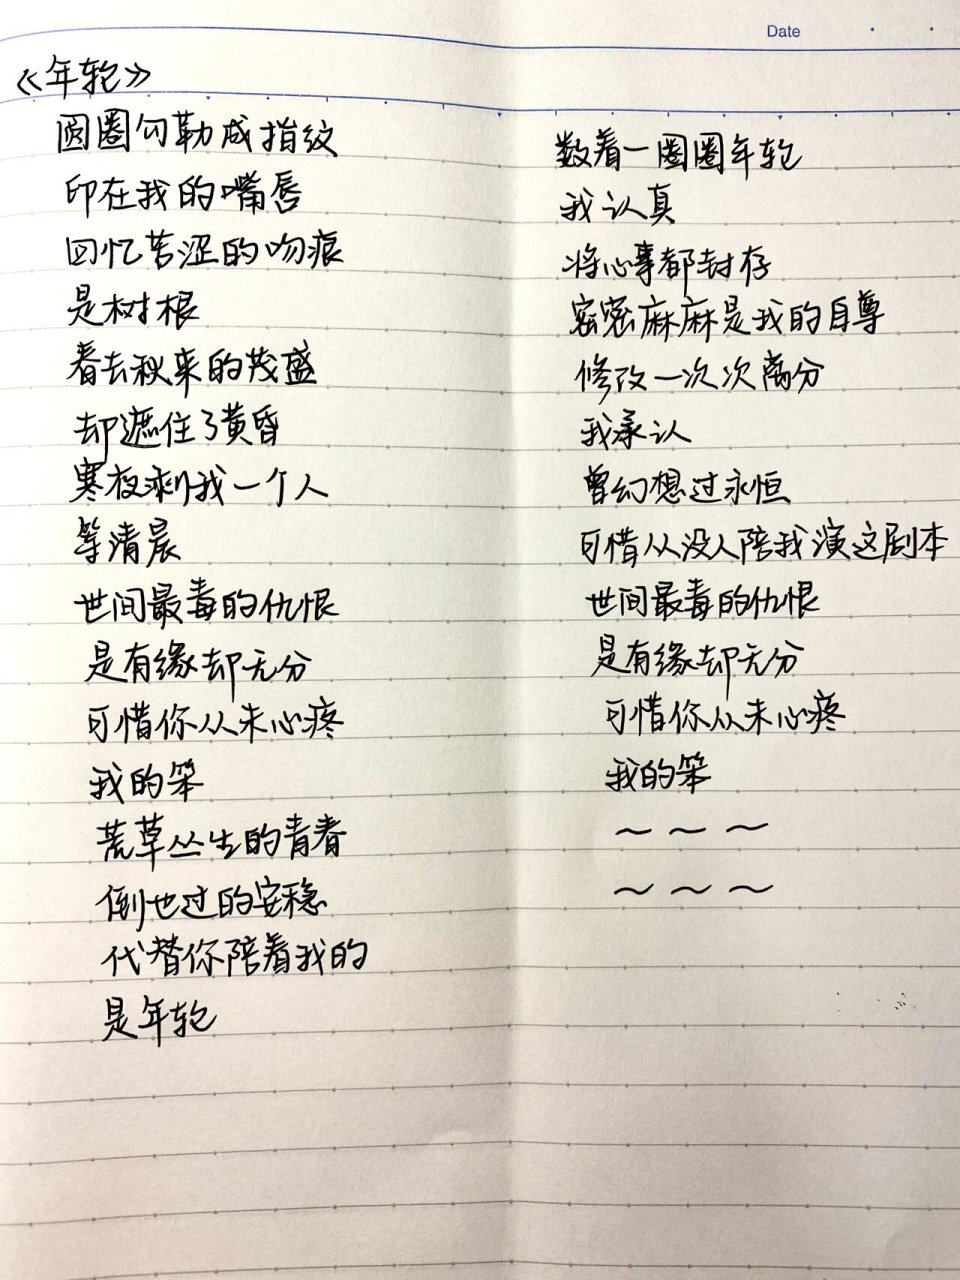 Date
《年轮》
圆圈勾勒成指纹
印在我的嘴唇
回忆苦涩的吻痕
是树根
春去秋来的茂盛
却遮住了黄昏
寒夜剩我一个人
等清晨
世间最毒的仇恨
是有缘却无分
可惜你从未心疼
我的笨
荒草丛生的青春
倒也过的安稳
代替你陪着我的
是年轮
数着一圈圈年轮
我认真
将心事都封存
密密麻麻是我的自尊
修改一次次离分
我承认
曾幻想过永恒
可惜从没人陪我演这剧本
世间最毒的仇恨
是有缘却无分
可惜你从未心疼
我的笨
～～～
～～～